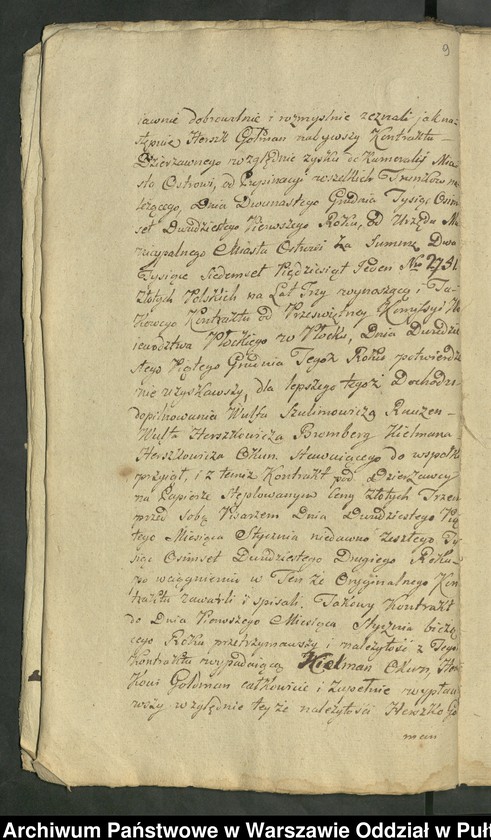 9
iawnie dobrowolnie i rozmyslnie zeznali jak na-
stępnie Herszk Gołman nabywszy Kontraktu
Dzierzawnego względnie zysku de Kameralis Mia-
sta Ostrowi, od Propinacyi wszelkich Trunków na
leżącego, Dnia Dwunastego Grudnia Tysiąc Osm
set Dwudziestego Pierwszego Roku, od Urzędu M
unicypalnego Miasta Ostrowi za Summę Dwa
Tysiące Siedemset Pięćdziesiąt Jeden Nro 2751.
Złotych Polskich na Lat Trzy wynoszącą i Ta-
kowego Kontraktu od Prześwietney Kommissyi Wo
iewództwa Płockiego w Płocku, Dnia Dwudzie
stego Piątego Grudnia Tegoż Roku potwierdze
nie uzyskawszy, dla lepszego tegoż Dochodu
dopilnowania Wulfa Szulimowicza Rauzen-
Wulfa Herszkowicza Bromberg Kielmana
Herszkowicza Okun. stawaiącego do wspołki
przyiął, i z temiż Kontrakt pod Dzierzawczy
na Papierze stęplowanym Ceny Złotych Trzech
przed sobą Pisarzem Dnia Dwudziestego Pią
tego Miesiąca Stycznia niedawno zeszłego Ty
siąc Osimset Dwudziestego Drugiego Roku
po wciągnieniu w Ten że Oryginalnego Kon
traktu zawarli i spisali. Takowy Kontrakt
do Dnia Pierwszego Miesiąca Stycznia bieżą
cego Roku przetrzymawszy i należytość z Tego
Kontraktu wypadaiącą Kielman Okun, Hersz
kowi Goldman całkowicie i zupełnie wypłaci
wszy względnie tey że należytości Herszko Go
man
Archiwum Państwowe w Warszawie Oddział w Puł